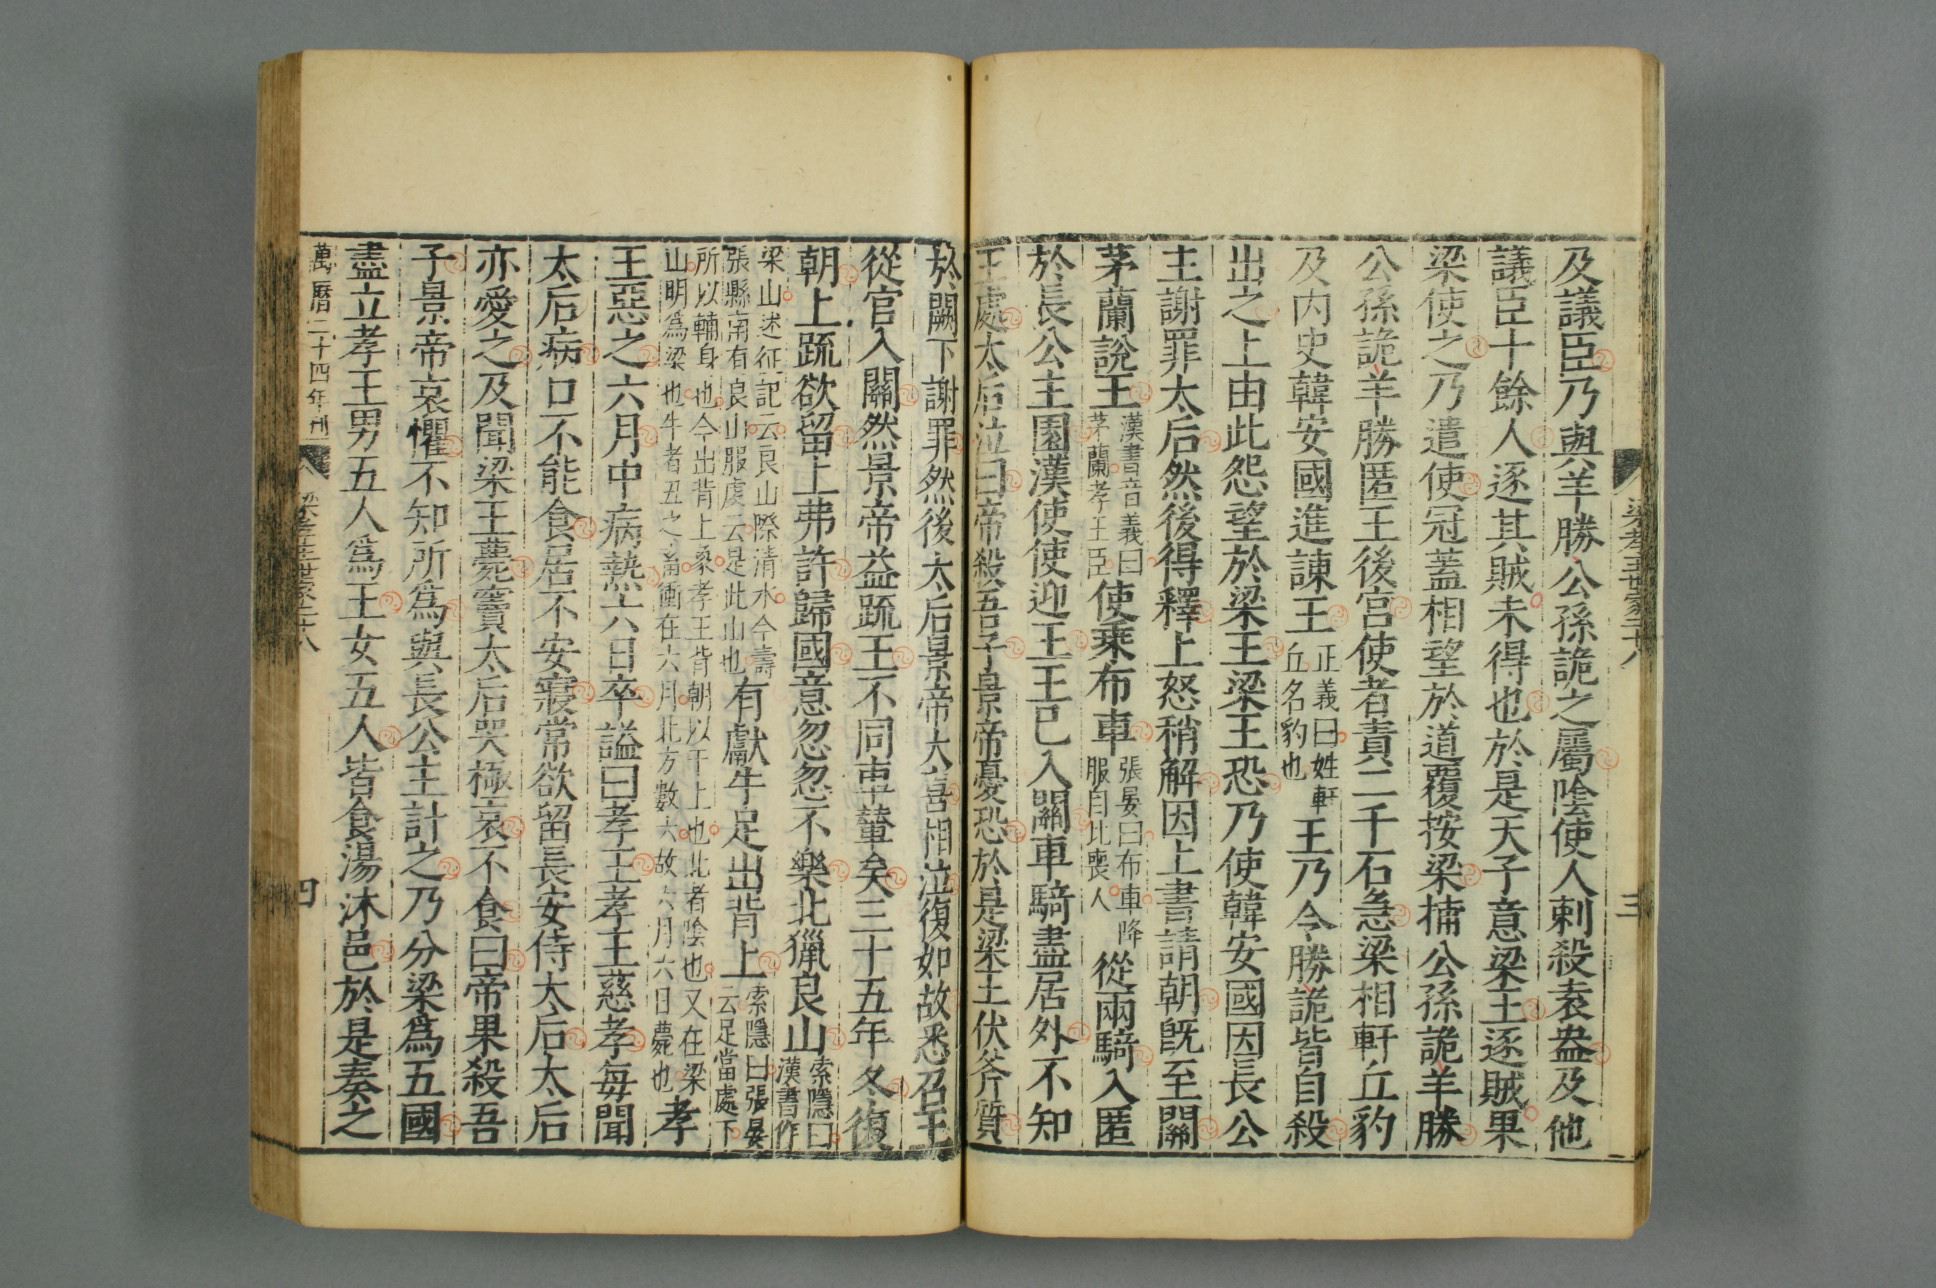 及議臣乃與羊勝公孫詭之屬陰使人刺殺袁盎及他
議臣十餘人逐其賊未得也於是天子意梁王逐賊果
梁使之乃遣使冠蓋相望於道覆按梁捕公孫詭羊勝
公孫詭羊勝匿王後宮使者責二千石急梁相軒丘豹
及內史韓安國進諫王正義曰姓軒丘名豹也王乃令勝詭皆自殺
出之上由此怨望於梁王梁王恐乃使韓安國因長公
主謝罪太后然後得釋上怒稍解因上書請朝旣至關
茅蘭說王漢書音義曰茅蘭孝王臣使乘布車張晏曰布車降服自比喪人從兩騎入匿
於長公主園漢使使迎王王已入關車騎盡居外不知
王處太后泣曰帝殺吾子景帝憂恐於是梁王伏斧質
於闕下謝罪然後太后景帝大喜相泣復如故悉召王
從官入關然景帝益疏王不同車輦矣三十五年冬復
朝上疏欲留上弗許歸國意忽忽不樂北獵良山索隱曰漢書作
梁山述征記云良山際清水今壽張縣南有良山服虔云是此山也有獻牛足出背上索隱曰張晏云足當處下
所以輔身也今出背上象孝王背朝以干上也北者陰也又在梁山明爲梁也牛者丑之畜衝在六月北方數六故六月六日薨也孝
王惡之六月中病熱六日卒謚曰孝王孝王慈孝每聞
太后病口不能食居不安寢常欲留長安侍太后太后
亦愛之及聞梁王薨竇太后哭極哀不食曰帝果殺吾
子景帝哀懼不知所爲與長公主計之乃分梁爲五國
盡立孝王男五人爲王女五人皆食湯沐邑於是奏之
萬曆二十四年刊
梁孝王世家二十八
四